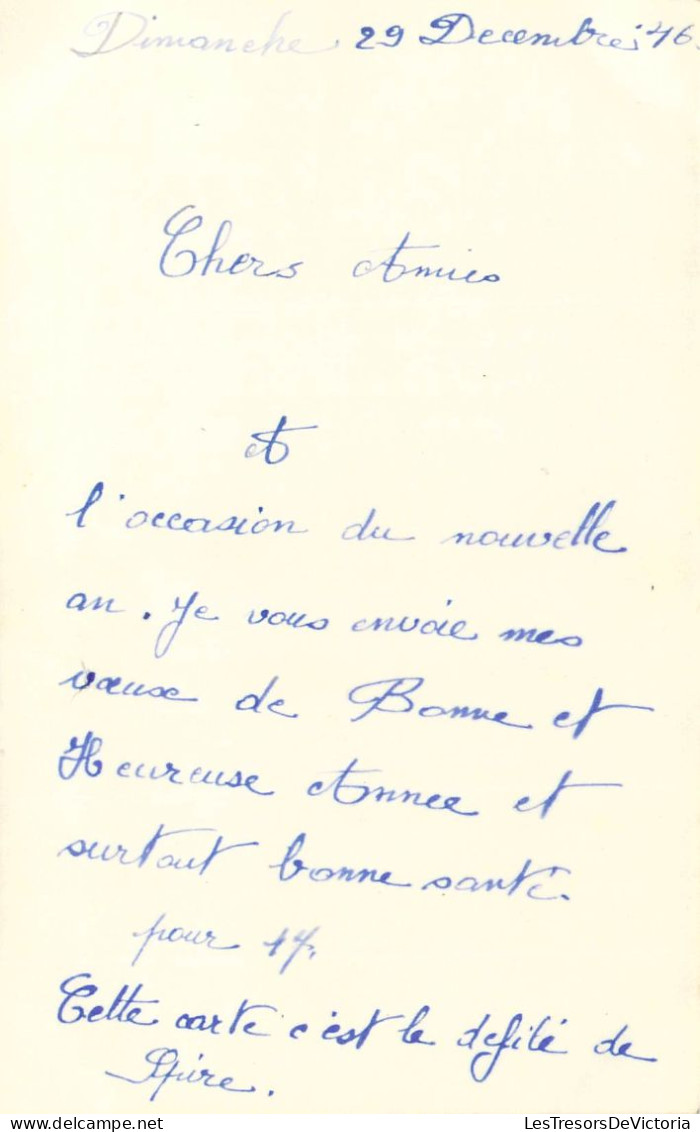 Dimanche 29 Decembre 46.
Chers Amies
A
l'occasion du nouvelle
an. Je vous envoie mes
vœux de Bonne et
Heureuse Annee et
surtout bonne santé.
pour 47.
Cette carte c'est le defilé de
Spire.
LesTresorsDeVictoria